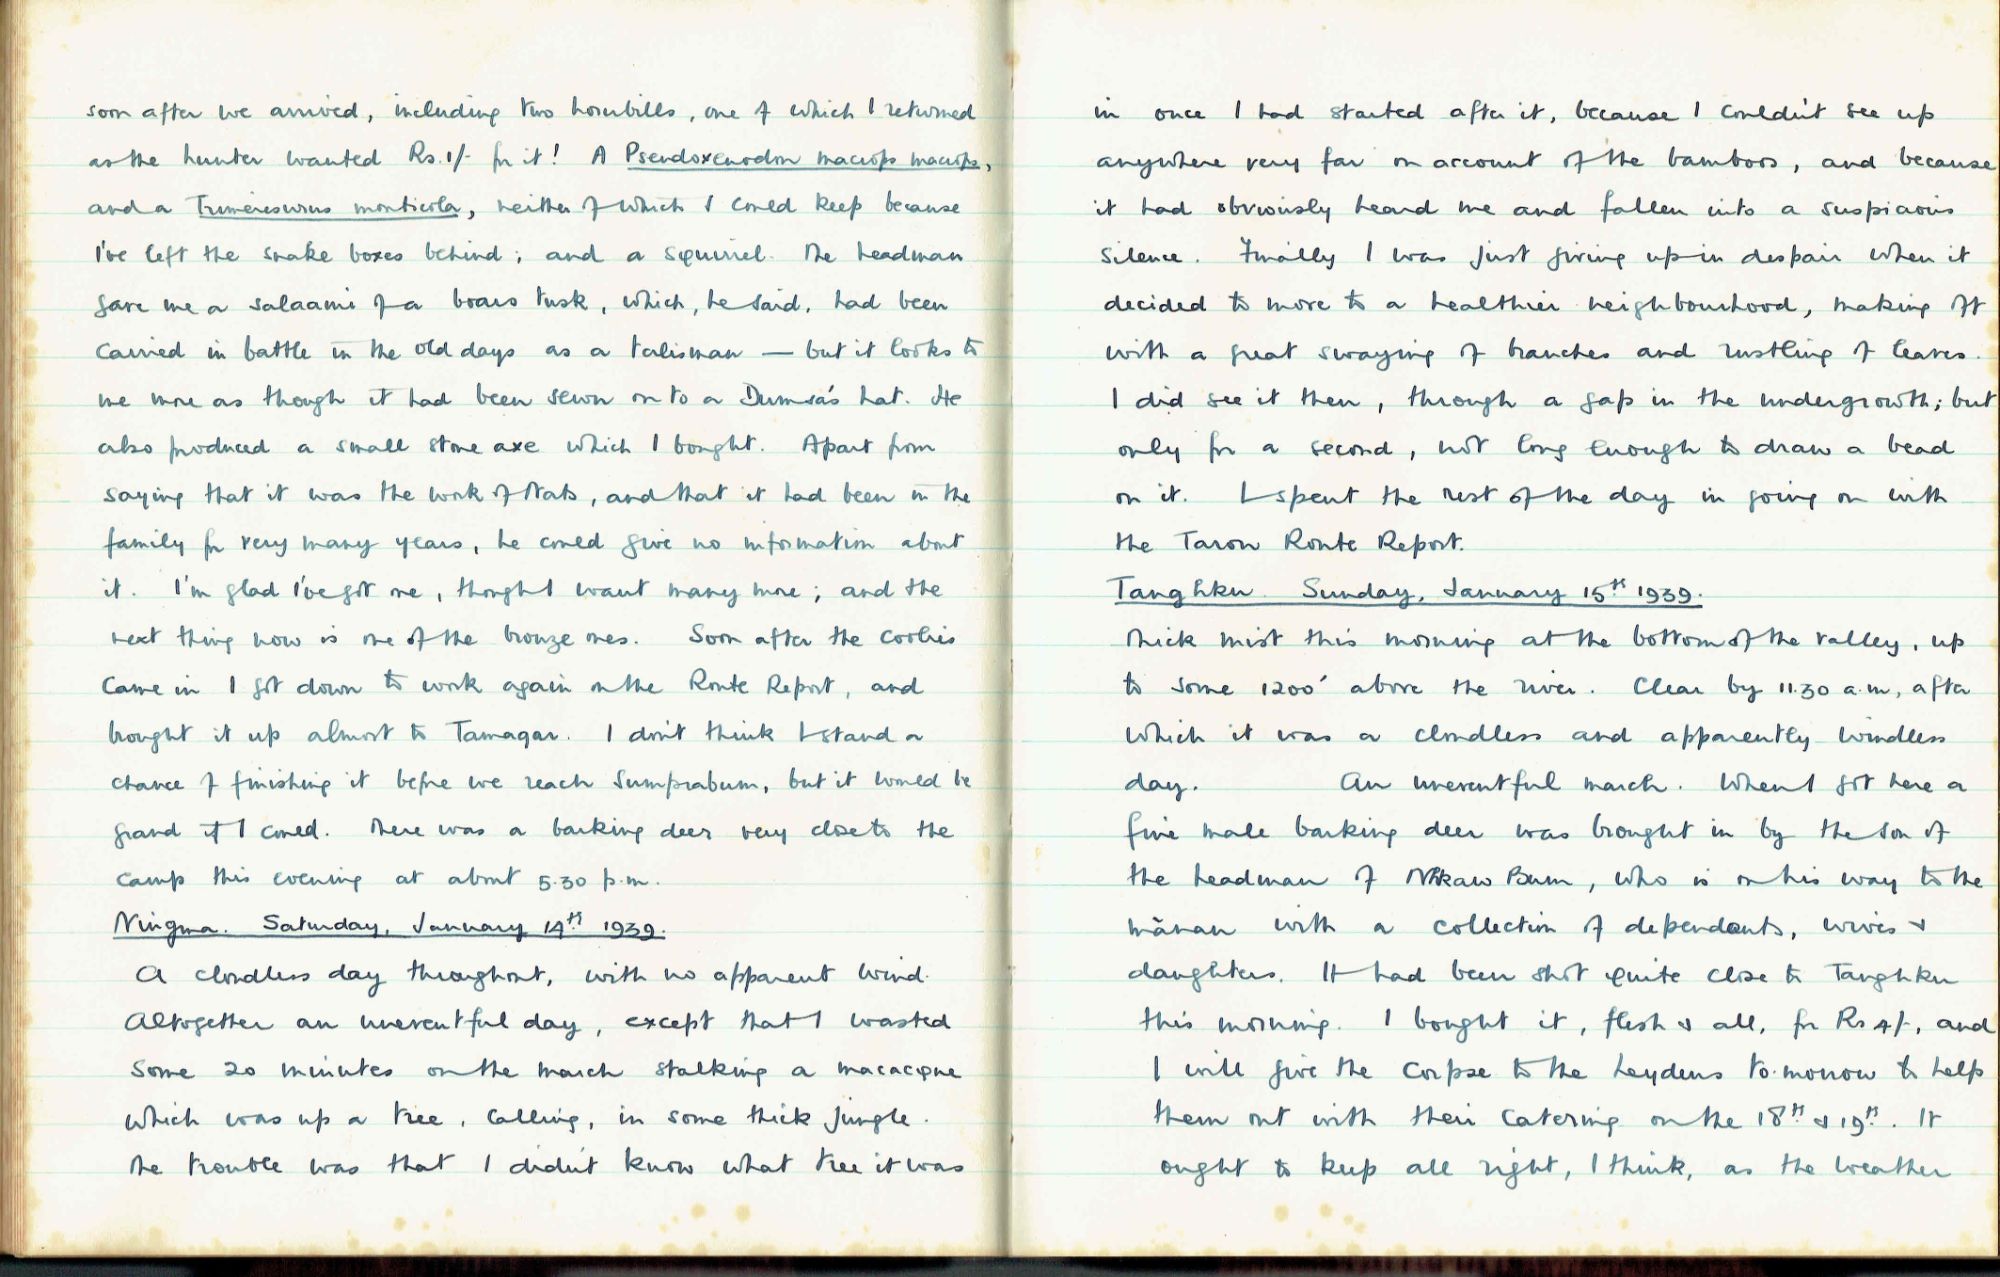 soon after we arrived, including two hornbills, one of which I returned
as the hunter wanted Rs.1/- for it! A Pseudoxenodon macrops macrops,
and a Trimeresurus monticola, neither of which I could keep because
I've left the snake boxes behind; and a squirrel. The headman
gave me a salaami of a boars tusk, which, he said, had been
carried in battle in the old days as a talisman — but it looks to
me more as though it had been sewn on to a Dumsa's hat. He
also produced a small stone axe which I bought. Apart from
saying that it was the work of Nats, and that it had been in the
family for very many years, he could give no information about
it. I'm glad I've got one, though I want many more; and the
next thing now is one of the bronze ones. Soon after the coolies
came in I got down to work again on the Route Report, and
brought it up almost to Tamagar. I don't think I stand a
chance of finishing it before we reach Sumprabum, but it would be
grand if I could. There was a barking deer very close to the
camp this evening at about 5.30 p.m.
Ningma. Saturday, January 14th 1939.
A cloudless day throughout, with no apparent wind.
Altogether an uneventful day, except that I wasted
some 20 minutes on the march stalking a macacque
which was up a tree, calling, in some thick jungle.
The trouble was that I didn't know what tree it was
in once I had started after it, because I couldn't see up
anywhere very far on account of the bamboos, and because
it had obviously heard me and fallen into a suspicious
silence. Finally I was just giving up in despair when it
decided to move to a healthier neighbourhood, making off
with a great swaying of branches and rustling of leaves.
I did see it then, through a gap in the undergrowth; but
only for a second, not long enough to draw a bead
on it. I spent the rest of the day in going on with
the Taron Route Report.
Tanghku. Sunday, January 15th 1939.
Thick mist this morning at the bottom of the valley, up
to some 1200' above the river. Clear by 11.30 a.m, after
which it was a cloudless and apparently windless
day. An uneventful march. When I got here a
fine male barking deer was brought in by the son of
the headman of Nhkaw Bum, who is on his way to the
mānan with a collection of dependants, wives &
daughters. It had been shot quite close to Tanghku
this morning. I bought it, flesh & all, for Rs 4/-, and
I will give the corpse to the Leydens to-morrow to help
them out with their catering on the 18th & 19th. It
ought to keep all right, I think, as the weather